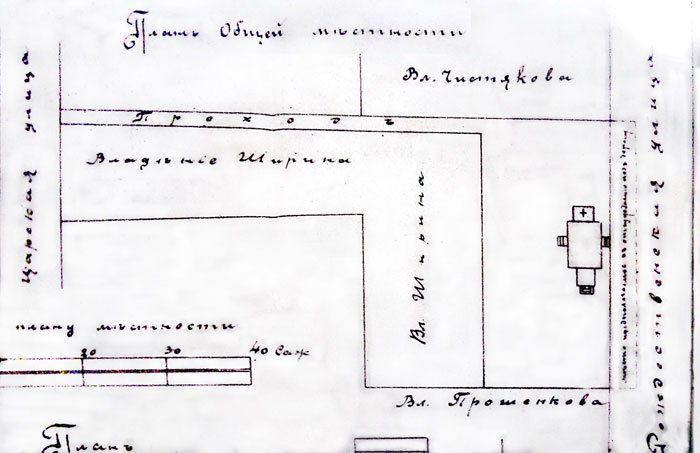 Планъ Общей мѣстности
Вл. Чистякова
Проходъ
Владѣніе Ширина
Царская улица
Вл. Ширина
Рождественская улица
плану мѣстности
20 30 40 саж
Вл. Прошенкова
Планъ